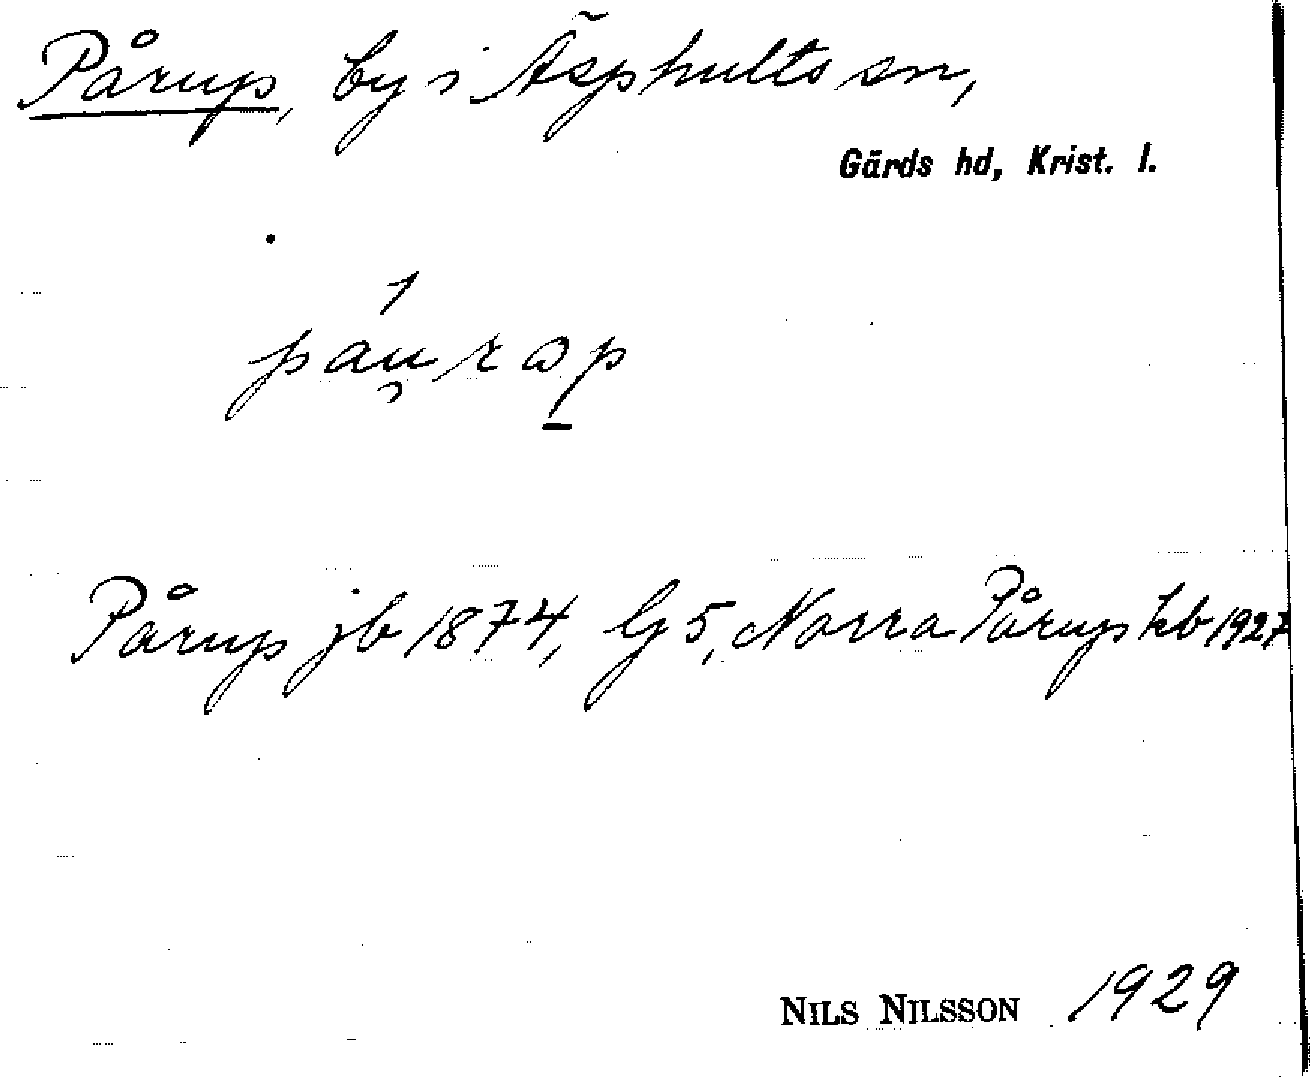 Pårup, by i Äsphults sn,
Gärds hd, Krist. l.
Pårup jb 1874, by 5, Norra Pårup kb 1927
NILS NILSSON 1929